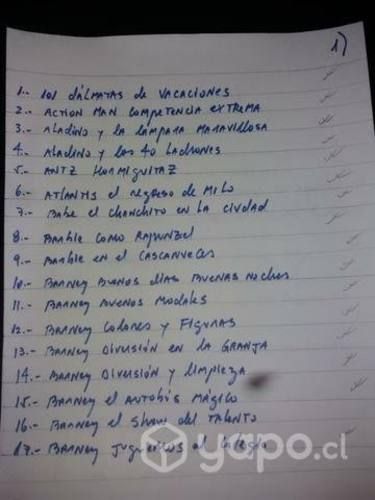 1)
1.- 101 DÁLMATAS de VACACIONES
2.- ACTION MAN COMPETENCIA EXTREMA
3.- ALADINO y LA LÁMPARA MARAVILLOSA
4.- ALADINO y LOS 40 LADRONES
5.- ANTZ HORMIGUITAZ
6.- ATLANTIS el REGRESO DE MILO
7.- BABE el CHANCHITO EN LA CIUDAD
8.- BARBIE COMO RAPUNZEL
9.- BARBIE EN el CASCANUECES
10.- BARNEY BUENOS DIAS BUENAS NOCHES
11.- BARNEY BUENOS MODALES
12.- BARNEY COLORES y FIGURAS
13.- BARNEY DIVERSIÓN EN LA GRANJA
14.- BARNEY DIVERSIÓN y LIMPIEZA
15.- BARNEY el AUTOBÚS MÁGICO
16.- BARNEY el SHOW del TALENTO
17.- BARNEY JUGUEMOS al Colegio
yapo.cl